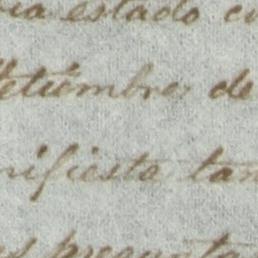 ha estado en
Setiembre de
nifiesta tam
es pregunta